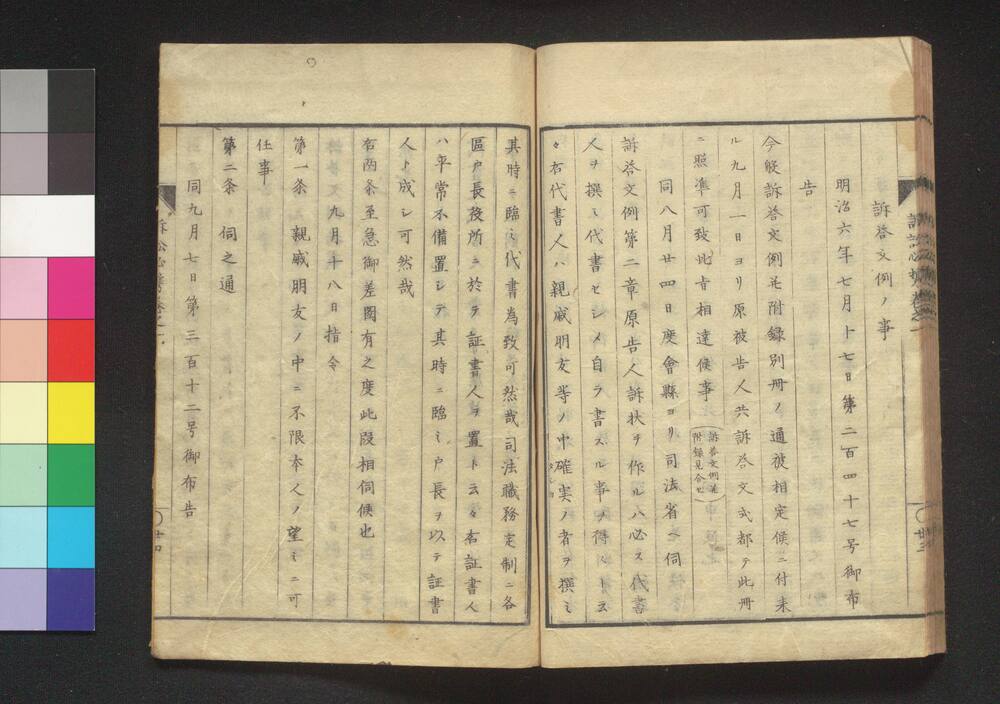 訴答文例ノ事
明治六年七月十七日第二百四十七号御布
告
今般訴答文例并附録別冊ノ通被相定候ニ付来
ル九月一日ヨリ原被告人共訴答文式都テ此冊
ニ照準可致此旨相達候事
訴答文例并
附録見合セ
同八月廿四日度會縣ヨリ司法省ヘ伺
訴答文例第二章原告人訴状ヲ作ルハ必ス代書
人ヲ撰ミ代書セシメ自ラ書スル事ヲ得ストス
々右代書人ハ親戚朋友等ノ中確実ノ者ヲ撰ミ
其時ニ臨ミ代書為致可然哉司法職務定制ニ各
區戸長役所ニ於テ証書人ヲ置ト云々右証書人
ハ平常不備置シテ其時ニ臨ミ戸長ヲ以テ証書
人ト成シ可然哉
右両条至急御差圖有之度此段相伺候也
九月十八日指令
第一条親戚朋友ノ中ニ不限本人ノ望ミニ可
任事
第二条伺之通
同九月七日第三百十二号御布告
訴訟必携巻之一
〇廿三
〇廿四